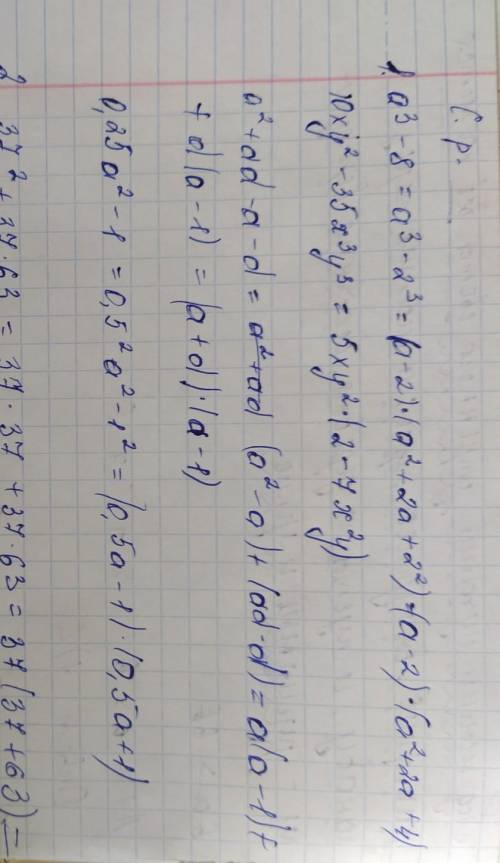 С. р.
1. a³ - 8 = a³ - 2³ = (a - 2)·(a² + 2a + 2²) = (a - 2)·(a² + 2a + 4)
10xy² - 35x³y³ = 5xy²·(2 - 7x²y)
a² + ad - a - d = a² + ad (a² - a) + (ad - d) = a(a - 1) +
+ d(a - 1) = (a + d)·(a - 1)
0,25a² - 1 = 0,5²a² - 1² = (0,5a - 1)·(0,5a + 1)
2 37² + 37·63 = 37·37 + 37·63 = 37(37 + 63) =